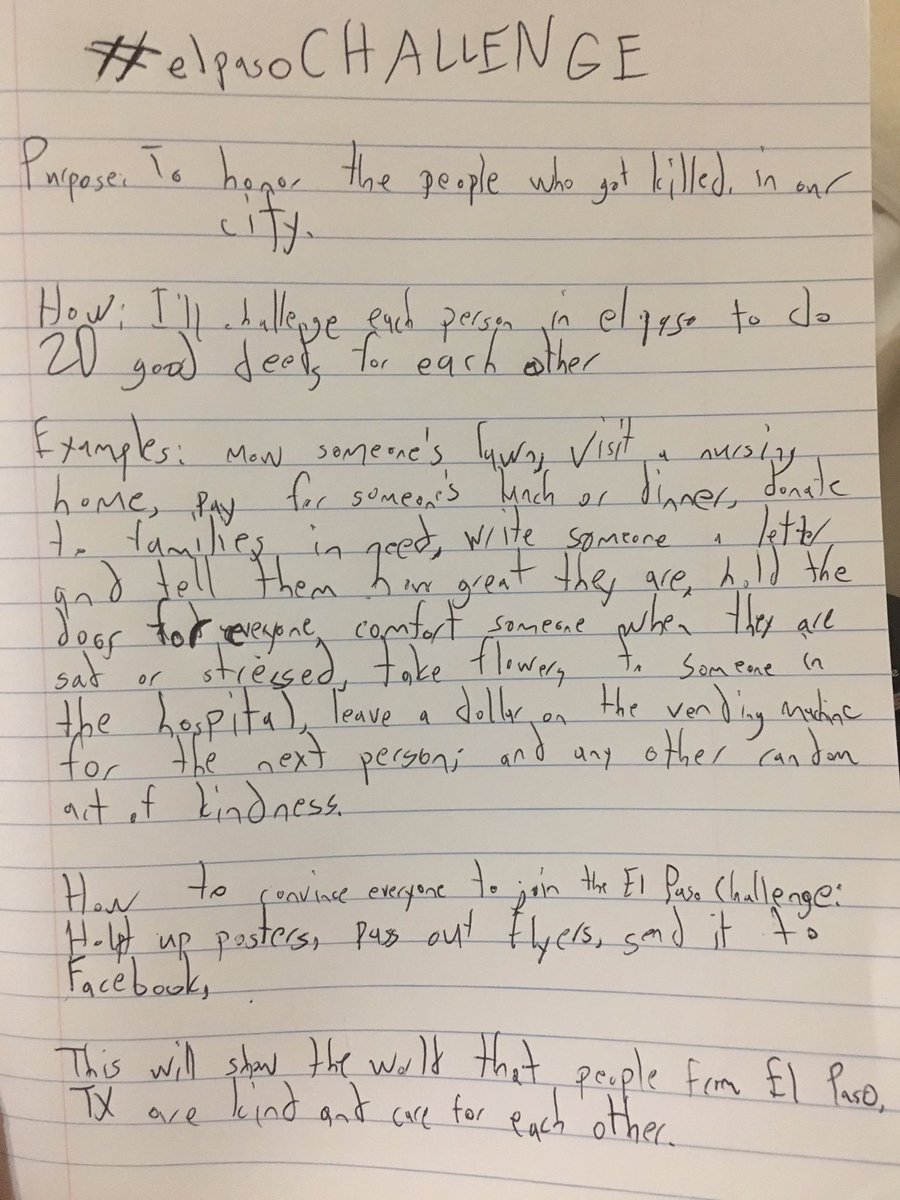 #elpasoCHALLENGE
Purpose: To honor the people who got killed. in our
city.
How: I'll challenge each person in elpaso to do
20 good deeds for each other
Examples: Mow someone's lawn, visit a nursing
home, pay for someone's lunch or dinner, donate
to families in need, write someone a letter
and tell them how great they are, hold the
door for everyone, comfort someone when they are
sad or stressed, take flowers to someone in
the hospital, leave a dollar on the vending machine
for the next person; and any other random
act of kindness.
How to convince everyone to join the El Paso Challenge:
up posters, pass out flyers, send it to
Facebook,
This will show the world that people from El Paso,
TX are kind and care for each other.